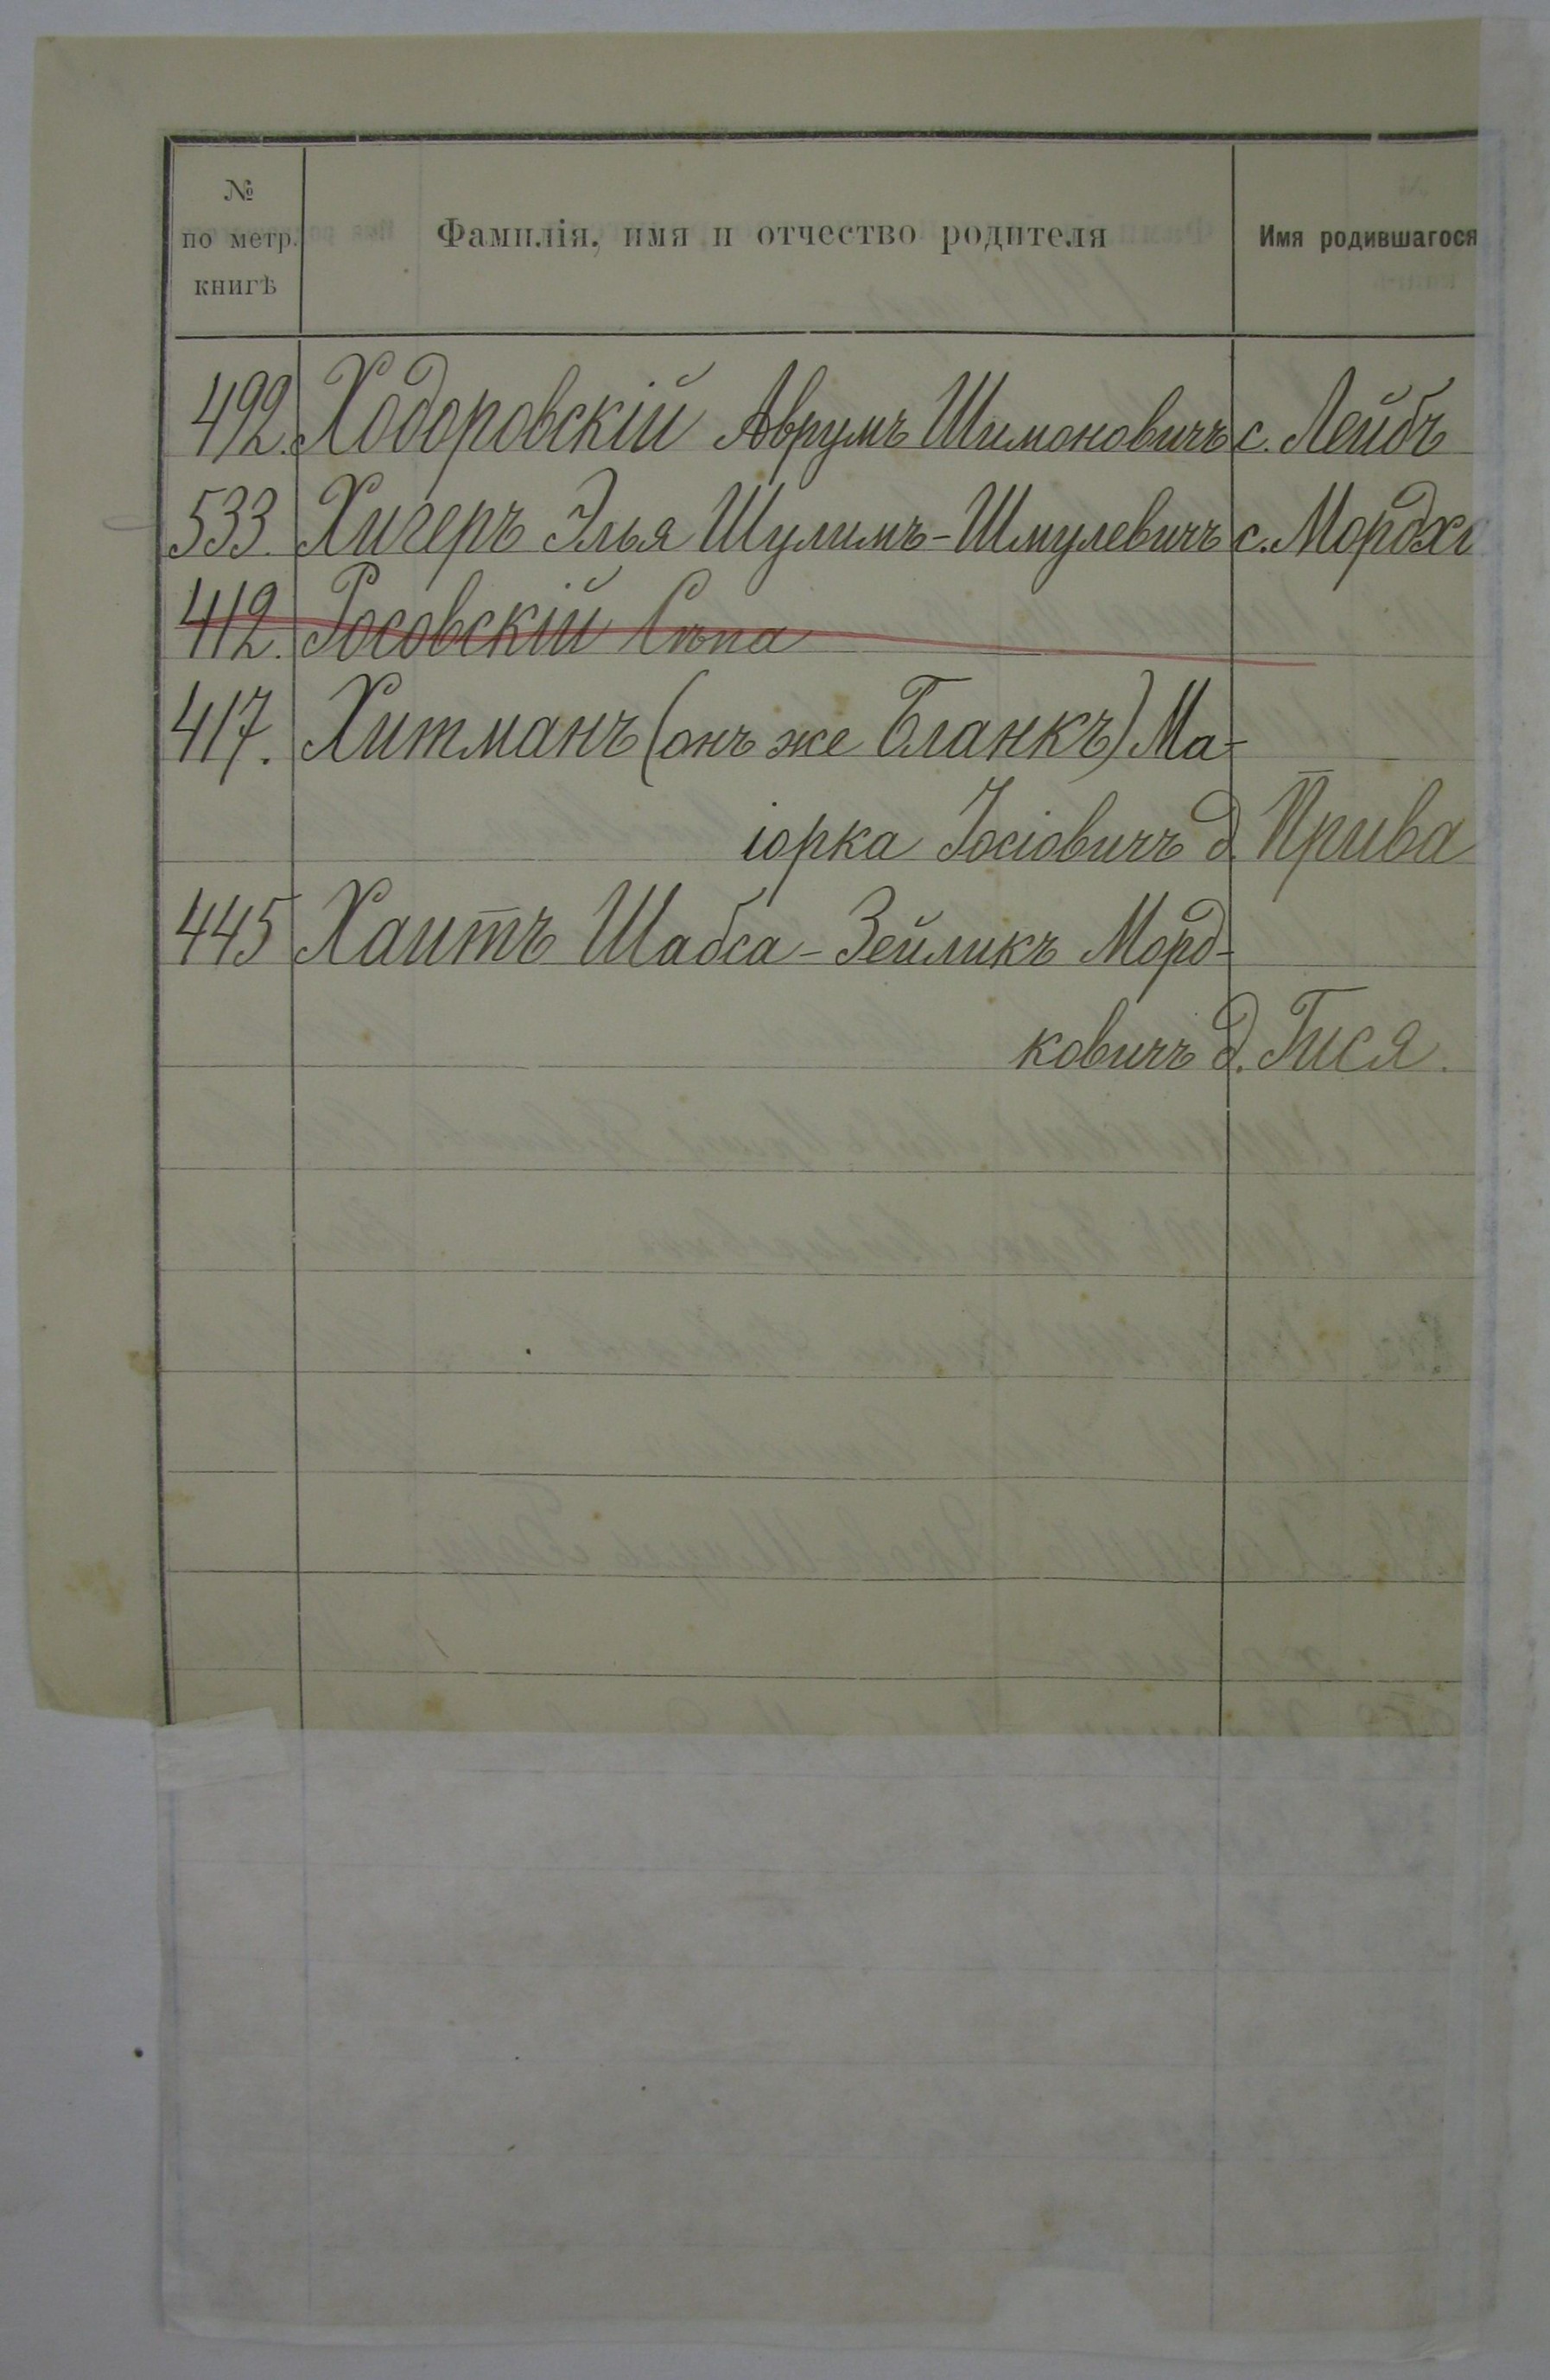 №
по метр.
книгѣ
Фамилія, имя и отчество родителя
Имя родившагося
492. Ходоровскій Аврумъ Шимоновичъ с. Лейбъ
533. Хигеръ Элья Шулимъ-Шмулевичъ с. Мордх
412. Росовскій
417. Хитманъ (онъ же Бланкъ) Ма-
іорка Іосіовичъ д. Прива
445 Хаитъ Шабса-Зейликъ Морд-
ковичъ д. Гися.